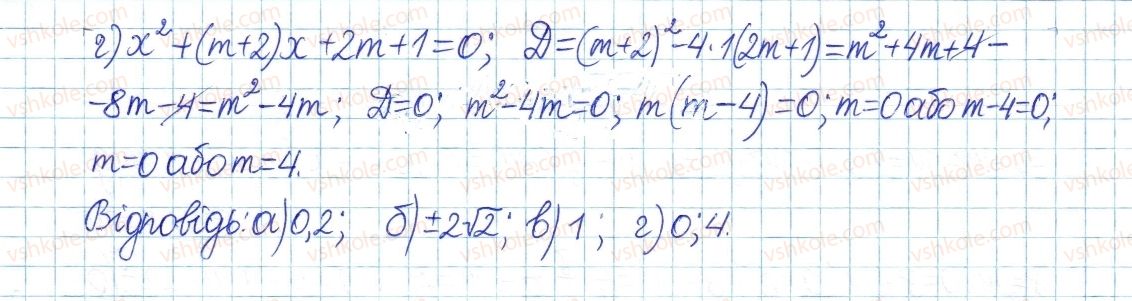 г) x²+(m+2)x+2m+1=0; Д=(m+2)²-4·1(2m+1)=m²+4m+4-
-8m-4=m²-4m; Д=0; m²-4m=0; m(m-4)=0; m=0 або m-4=0;
m=0 або m=4.
Відповідь: а) 0,2; б) ±2√2; в) 1; г) 0; 4.